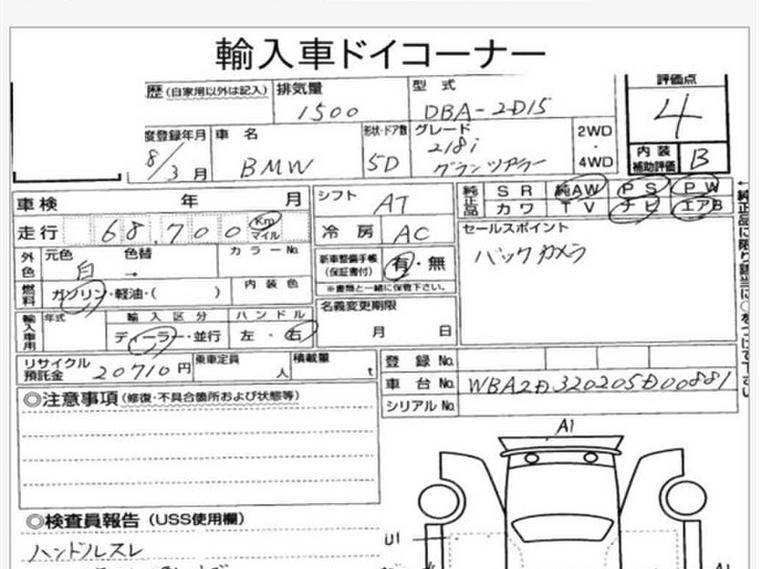 輸入車ドイコーナー
歴 (自家用以外は記入) 排気量 1500 型式 DBA-2D15 評価点 4
度登録年月 8/3月 車名 BMW 形状・ドア数 5D グレード 218i グランツアラー 2WD・4WD 内装補助評価 B
車検 年 月 シフト AT 純正品 SR 純AW PS PW
走行 68,700 Km マイル 冷房 AC カワ TV ナビ エアB
外色 元色 白 色替 → カラーNo. 新車整備手帳(保証書付) 有・無 セールスポイント
※書類と一緒に保管下さい。 バックカメラ
燃料 ガソリン・軽油・( ) 内装色 名義変更期限
輸入車用 年式 輸入区分 ディーラー・並行 ハンドル 左・右 月 日
リサイクル預託金 20710円 乗車定員 人 積載量 t 登録No.
車台No. WBA2D320205D00881
シリアルNo.
◎注意事項 (修復・不具合箇所および状態等)
A1
◎検査員報告 (USS使用欄)
U1
ハンドルスレ
A1